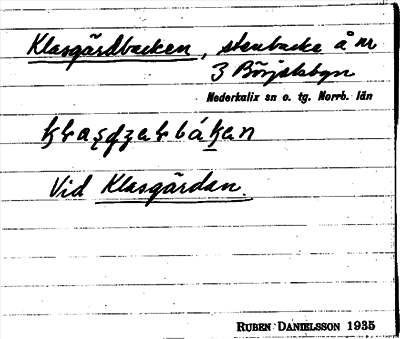 Klasgårdbacken, stenbacke å nr
3 Börjelsbyn
Nederkalix sn o. tg. Norrb. län
Vid Klasgårdan.
RUBEN DANIELSSON 1935